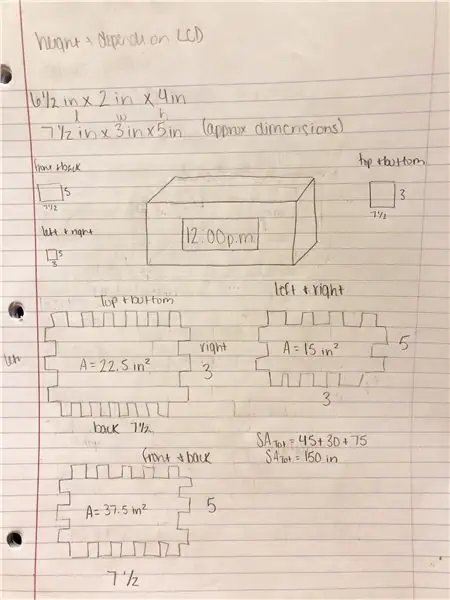 height → depend on LCD
6 1/2 in x 2 in x 4in
l w h
7 1/2 in x 3 in x 5in (approx dimensions)
front + back
5
7 1/2
top + bottom
3
7 1/2
left + right
5
3
12:00p.m.
Top + bottom
A = 22.5 in²
right
3
back 7 1/2
left
left + right
A = 15 in²
5
3
SA Tot = 45 + 30 + 75
SA Tot = 150 in
front + back
A = 37.5 in²
5
7 1/2